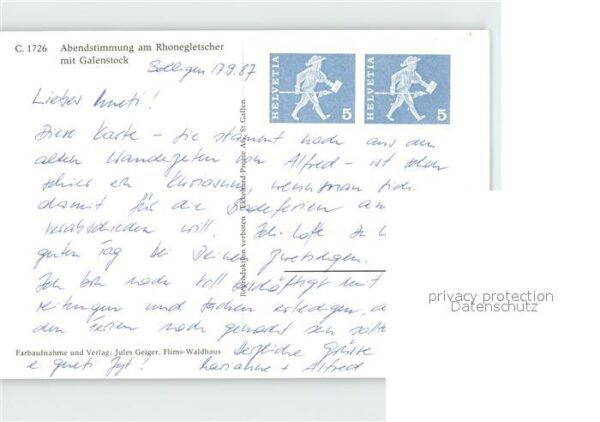 C. 1726 Abendstimmung am Rhonegletscher
mit Galenstock
Bolligen 17.9.87
HELVETIA 5
HELVETIA 5
Lieber
Diese Karte – sie stammt noch aus den
alten Wanderzeiten von Alfred – ist schon
schier ein Kuriosum, wenn man sich
damit für die Badeferien
verabschieden will. Ich hoffe
guten Tag bei Deinen
Ich bin noch voll beschäftigt mit
und Sachen erledigen,
den Ferien noch gemacht sein sollte
Herzliche Grüsse
e gueti Zyt! Marianne + Alfred
Reproduktion verboten Ekkehard-Presse AG, St. Gallen
Farbaufnahme und Verlag: Jules Geiger. Flims-Waldhaus
privacy protection
Datenschutz